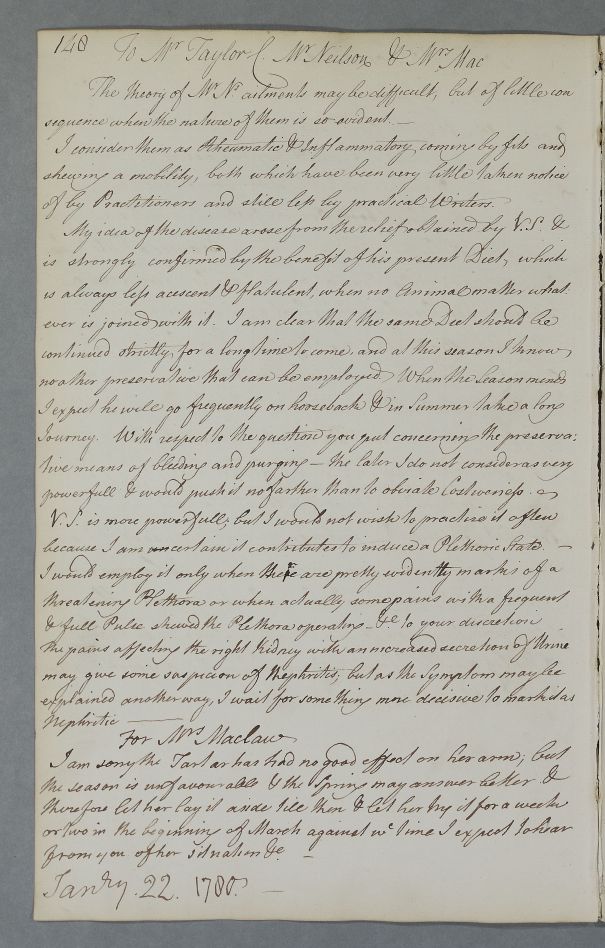 148 To Mr Taylor C. Mr Neilson & Mrs Mac
The theory of Mr Ns ailments may be difficult, but of little con
sequence when the nature of them is so evident. —
I consider them as Rheumatic & Inflammatory, coming by fits and
shewing a mobility, both which have been very little taken notice
of by Practitioners and still less by practical Writers.
My idea of the disease arose from the relief obtained by V.S. &
is strongly confirmed by the benefit of his present Diet, which
is always less acescent & flatulent, when no Animal matter what-
ever is joined with it. I am clear that the same Diet should be
continued strictly, for a long time to come, and at this season I know
no other preservative that can be employed. When the Season mends
I expect he will go frequently on horseback & in Summer take a long
Journey. With respect to the question you put concerning the preserva:
tive means of bleeding and purging — the later I do not consider as very
powerfull & would push it no farther than to obviate Costiveness. —
V.S. is more powerfull, but I would not wish to practise it often
because I am certain it contributes to induce a Plethoric State. —
I would employ it only when there are pretty evidently marks of a
threatening Plethora or when actually some pains with a frequent
& full Pulse shewed the Plethora operating — &c to your discretion
The pains affecting the right Kidney with an increased secretion of Urine
may give some suspicion of Nephritis, but as the Symptom may be
explained another way, I wait for something more decisive to mark it as
Nephritic —
For Mrs Maclaw
I am sorry the Tartar has had no good effect on her arm, but
the season is unfavourable & the Spring may answer better &
therefore let her lay it aside till then & let her try it for a week
or two in the beginning of March against wc time I expect to hear
from you of her situation &c. —
Janry. 22. 1780. —